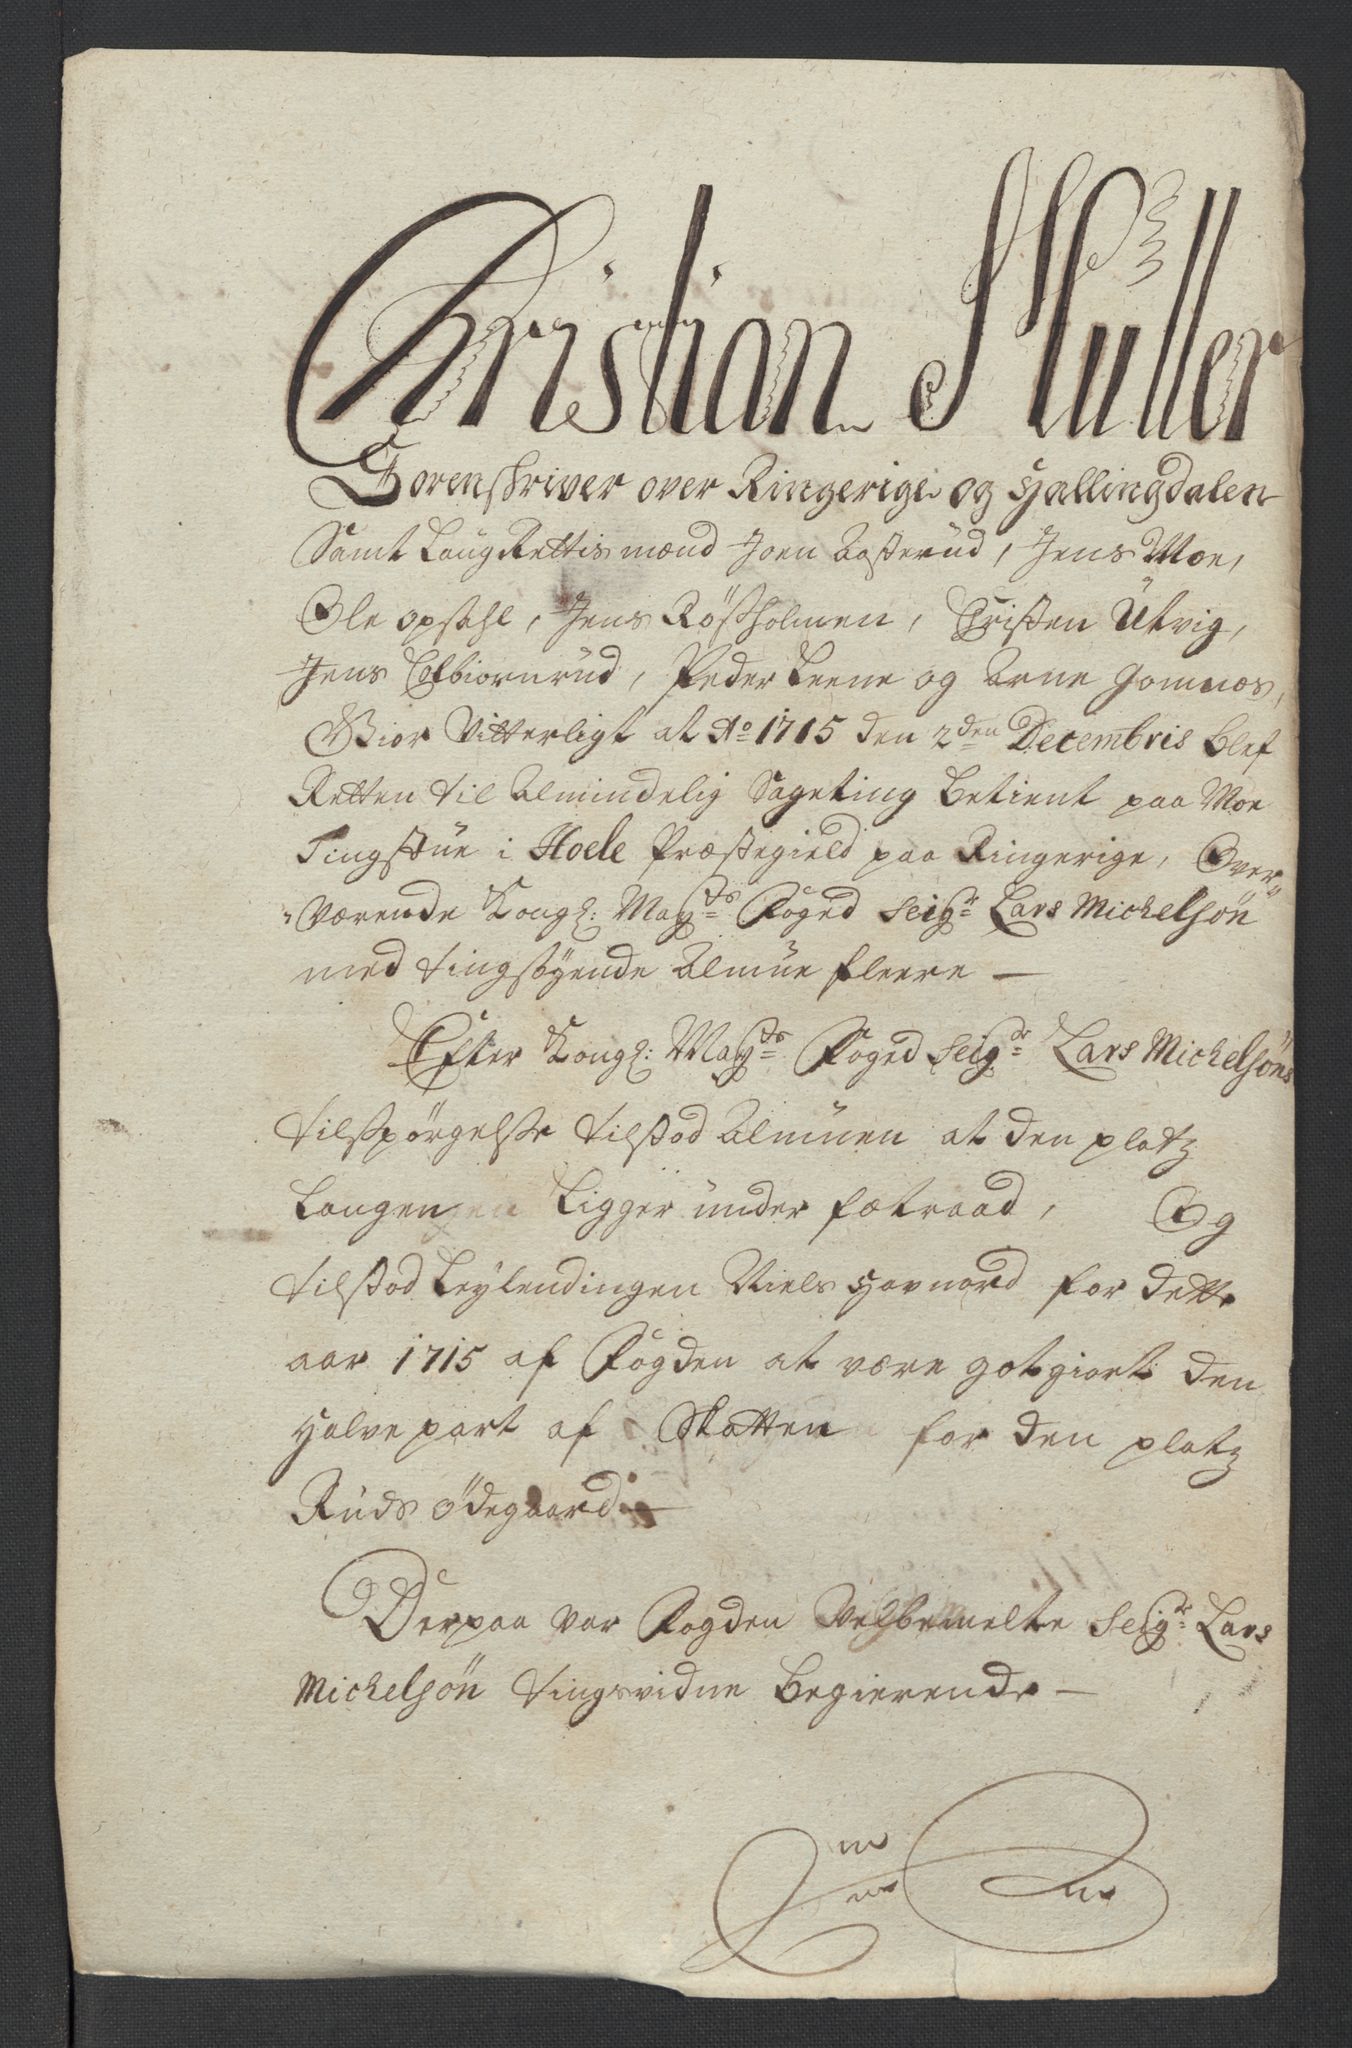 Christian Müller
Sorenschriver over Ringerige og Hallingdalen
Samt LaugRettis mænd Joen Aasterud, Jens Moe,
Ole opsahl, Jens Rößholmen, Christen Ütvig,
Jens Elbiornrüd, Peder Leene og Arne Gomnæs,
Giør Vitterligt at Ao 1715 den 2den Decembris blef
Retten til Almindelig Sageting betient paa Moe
Tingstüe i Hoele Præstegield paa Ringerige, Over
værende Kongl: Mayts Foged Seigr Lars Michelsøn
med tingsøgende Almüe fleere —
Efter Kongl: Mayts Foged Seigr Lars Michelsøns
tilspørgelse tilstod Almüen at den platz
Langen Ligger ünder fætraad, Og
tilstod Leylendingen Niels Hovnord for dette
aar 1715 af Fogden at være gotgiort den
halve part af Skatten for den platz
Rüds ödegaard —
Derpaa var Fogden Velbemelte Seigr Lars
Michelsøn tingsvidne begierende —